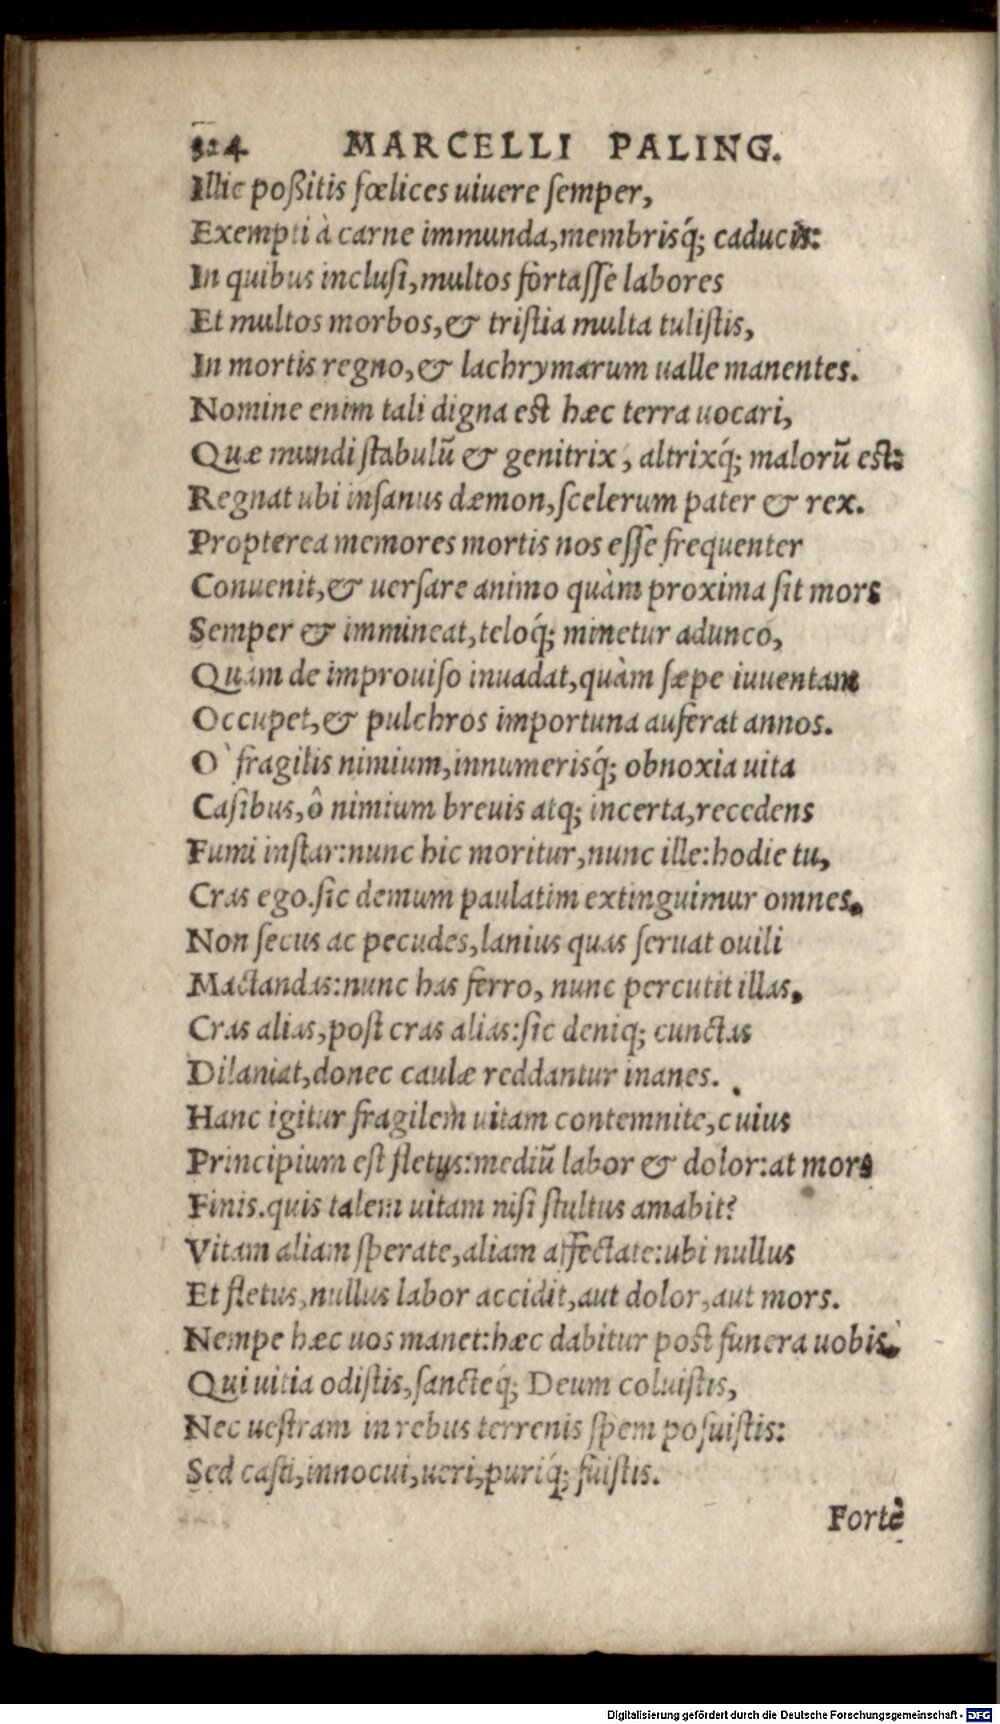 324 MARCELLI PALING.
Illic poßitis fœlices uiuere ſemper,
Exempti à carne immunda, membrisq́; caducis:
In quibus incluſi, multos fortaſſe labores
Et multos morbos, & triſtia multa tuliſtis,
In mortis regno, & lachrymarum ualle manentes.
Nomine enim tali digna est hæc terra uocari,
Quæ mundi ſtabulũ & genitrix, altrixq́; malorũ est:
Regnat ubi inſanus dæmon, ſcelerum pater & rex.
Propterea memores mortis nos eſſe frequenter
Conuenit, & uerſare animo quàm proxima ſit mors
Semper & immineat, teloq́; minetur adunco,
Quàm de improuiſo inuadat, quàm ſæpe iuuentam
Occupet, & pulchros importuna auferat annos.
O` fragilis nimium, innumerisq́; obnoxia uita
Caſibus, ô nimium breuis atq; incerta, recedens
Fumi inſtar: nunc hic moritur, nunc ille: hodie tu,
Cras ego. ſic demum paulatim extinguimur omnes.
Non ſecus ac pecudes, lanius quas ſeruat ouili
Mactandas: nunc has ferro, nunc percutit illas,
Cras alias, poſt cras alias: ſic deniq; cunctas
Dilaniat, donec caulæ reddantur inanes.
Hanc igitur fragilem uitam contemnite, cuius
Principium eſt fletus: mediũ labor & dolor: at mors
Finis. quis talem uitam niſi ſtultus amabit?
Vitam aliam ſperate, aliam affectate: ubi nullus
Et fletus, nullus labor accidit, aut dolor, aut mors.
Nempe hæc uos manet: hæc dabitur post funera uobis,
Qui uitia odiſtis, ſancteq́; Deum coluiſtis,
Nec ueſtram in rebus terrenis ſpem poſuiſtis:
Sed caſti, innocui, ueri, puriq́; fuiſtis.
Fortè
Digitalisierung gefördert durch die Deutsche Forschungsgemeinschaft - DFG